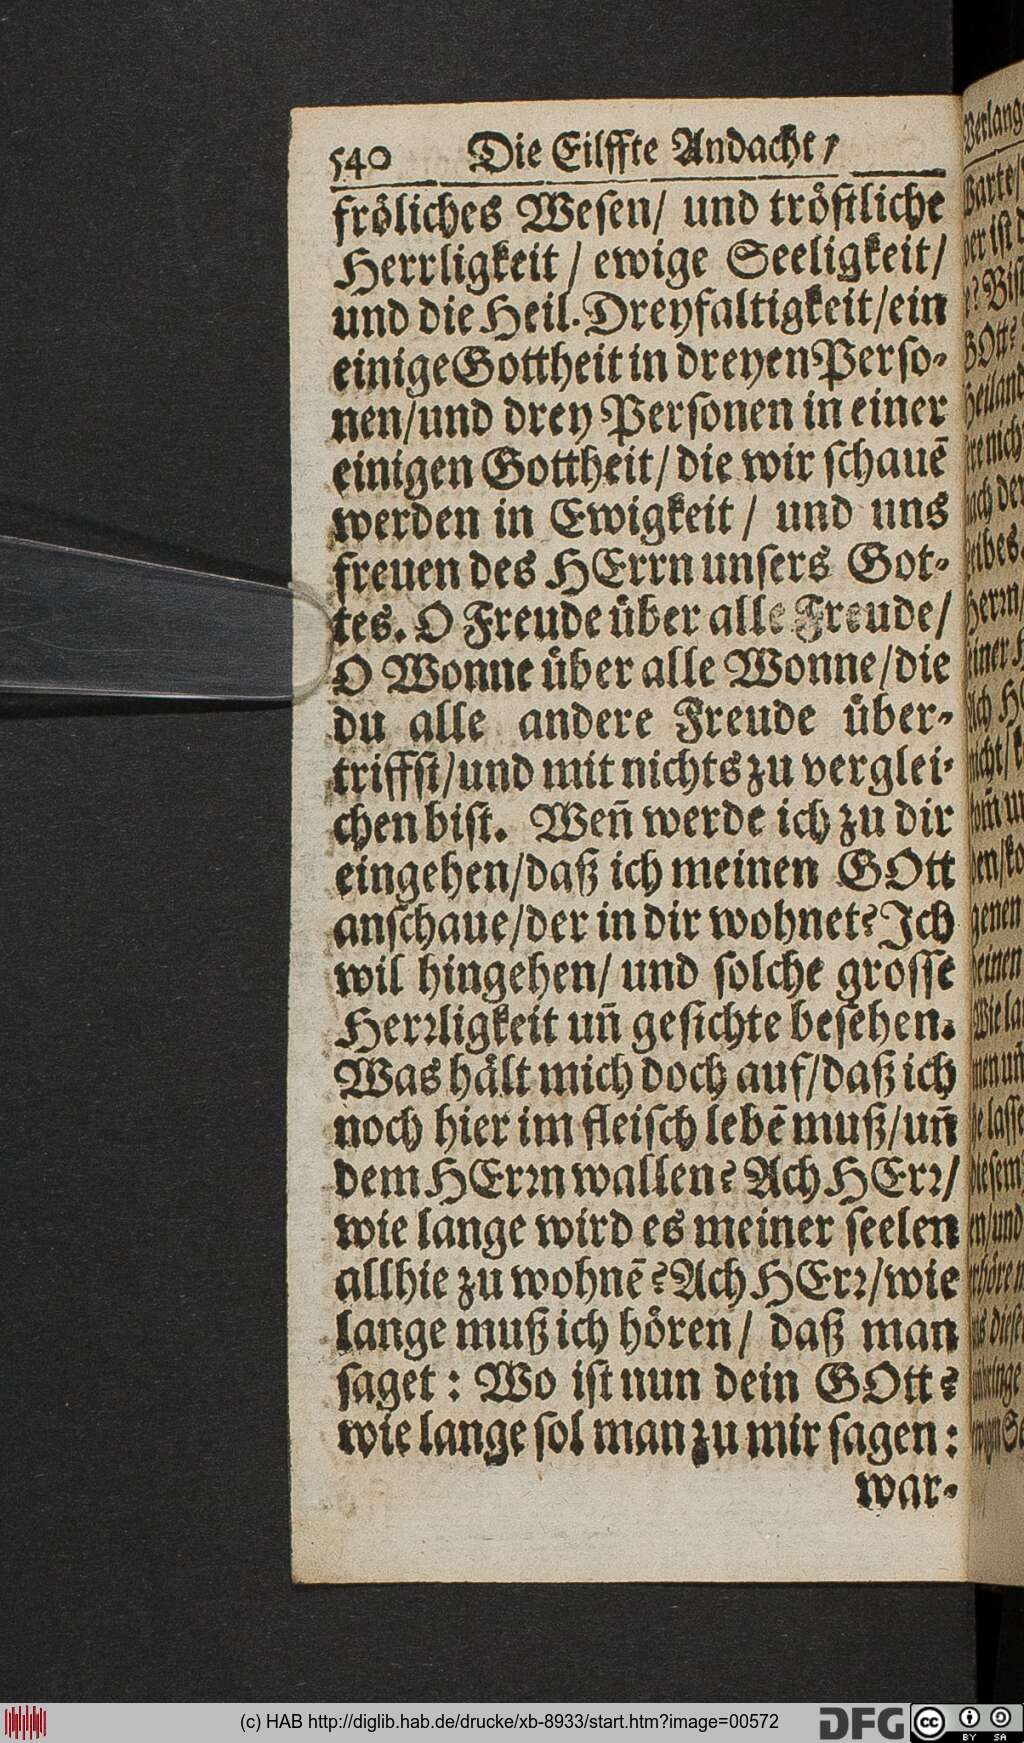 540 Die Eilffte Andacht /
fröliches Wesen/ und tröstliche
Herrligkeit / ewige Seeligkeit/
und die Heil. Dreyfaltigkeit/ein
einige Gottheit in dreyen Perso-
nen/und drey Personen in einer
einigen Gottheit/ die wir schauē
werden in Ewigkeit / und uns
freuen des HErrn unsers Got-
tes. O Freude über alle Freude/
O Wonne über alle Wonne/die
du alle andere Freude über-
triffst/und mit nichts zu verglei-
chen bist. Weñ werde ich zu dir
eingehen/daß ich meinen GOtt
anschaue/der in dir wohnet? Ich
wil hingehen/ und solche grosse
Herꝛligkeit uñ gesichte besehen.
Was hält mich doch auf/daß ich
noch hier im fleisch lebē muß/uñ
dem HErꝛn wallen? Ach HErꝛ/
wie lange wird es meiner seelen
allhie zu wohnē? Ach HErꝛ/wie
lange muß ich hören/ daß man
saget: Wo ist nun dein GOtt?
wie lange sol man zu mir sagen:
war-
(c) HAB http://diglib.hab.de/drucke/xb-8933/start.htm?image=00572
DFG
cc BY SA